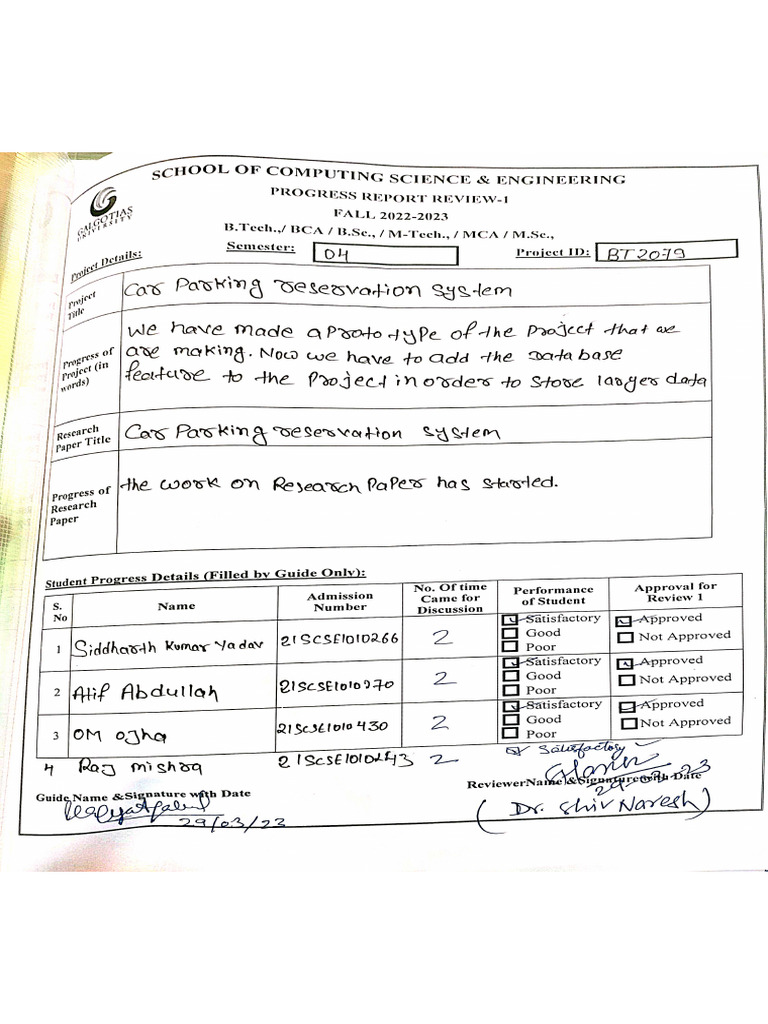 SCHOOL OF COMPUTING SCIENCE & ENGINEERING
PROGRESS REPORT REVIEW-1
FALL 2022-2023
GALGOTIAS
UNIVERSITY
B.Tech.,/ BCA / B.Sc., / M-Tech., / MCA / M.Sc.,
Project Details:
Semester: 04 Project ID: BT2079
Project Title Car Parking reservation system
Progress of Project (in words)
We have made a prototype of the Project that we
are making. Now we have to add the Database
feature to the Project in order to store larger data
Research Paper Title Car Parking reservation system
Progress of Research Paper the work on Research Paper has started.
Student Progress Details (Filled by Guide Only):
S. No Name Admission Number No. Of time Came for Discussion Performance of Student Approval for Review 1
1 Siddharth Kumar Yadav 21SCSE1010266 2 Satisfactory Approved
Good Not Approved
Poor
2 Atif Abdullah 21SCSE1010970 2 Satisfactory Approved
Good Not Approved
Poor
3 OM Ojha 21SCSE1010430 2 Satisfactory Approved
Good Not Approved
Poor
4 Raj mishra 21SCSE1010243 2 Satisfactory
Guide Name &Signature with Date
29/03/23
ReviewerName &Signature with Date
(Dr. Shiv Naresh)